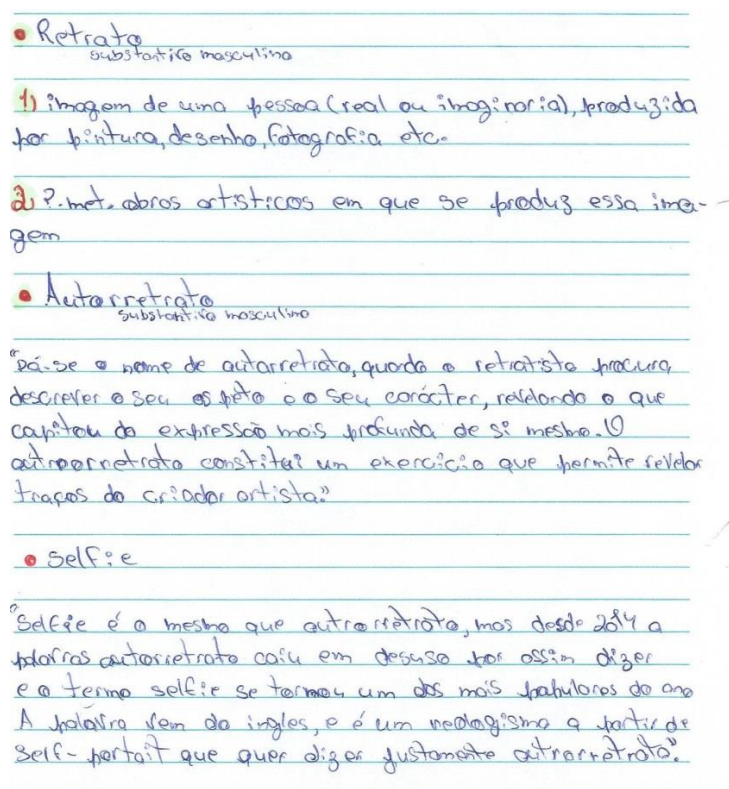 • Retrato
substantivo masculino
1) imagem de uma pessoa (real ou imaginaria), produzida
por pintura, desenho, fotografia etc.
2) P. met. obras artísticas em que se produz essa ima-
gem
• Autorretrato
substantivo masculino
"Dá-se o nome de autorretrato, quando o retratista procura
descrever o seu aspeto e o seu carácter, revelando o que
capitou da expressão mais profunda de si mesmo. O
constitui um exercício que permite revelar
traços do criador artista."
• Selfie
"Selfie é o mesmo que autrorretrato, mos desde 2014 a
palavras autorretrato caiu em desuso por assim dizer
e o termo selfie se tornou um dos mais papulores do ano
A palavra vem do ingles, e é um neologismo a partir de
self-portait que quer dizer justamente autrorretrato".